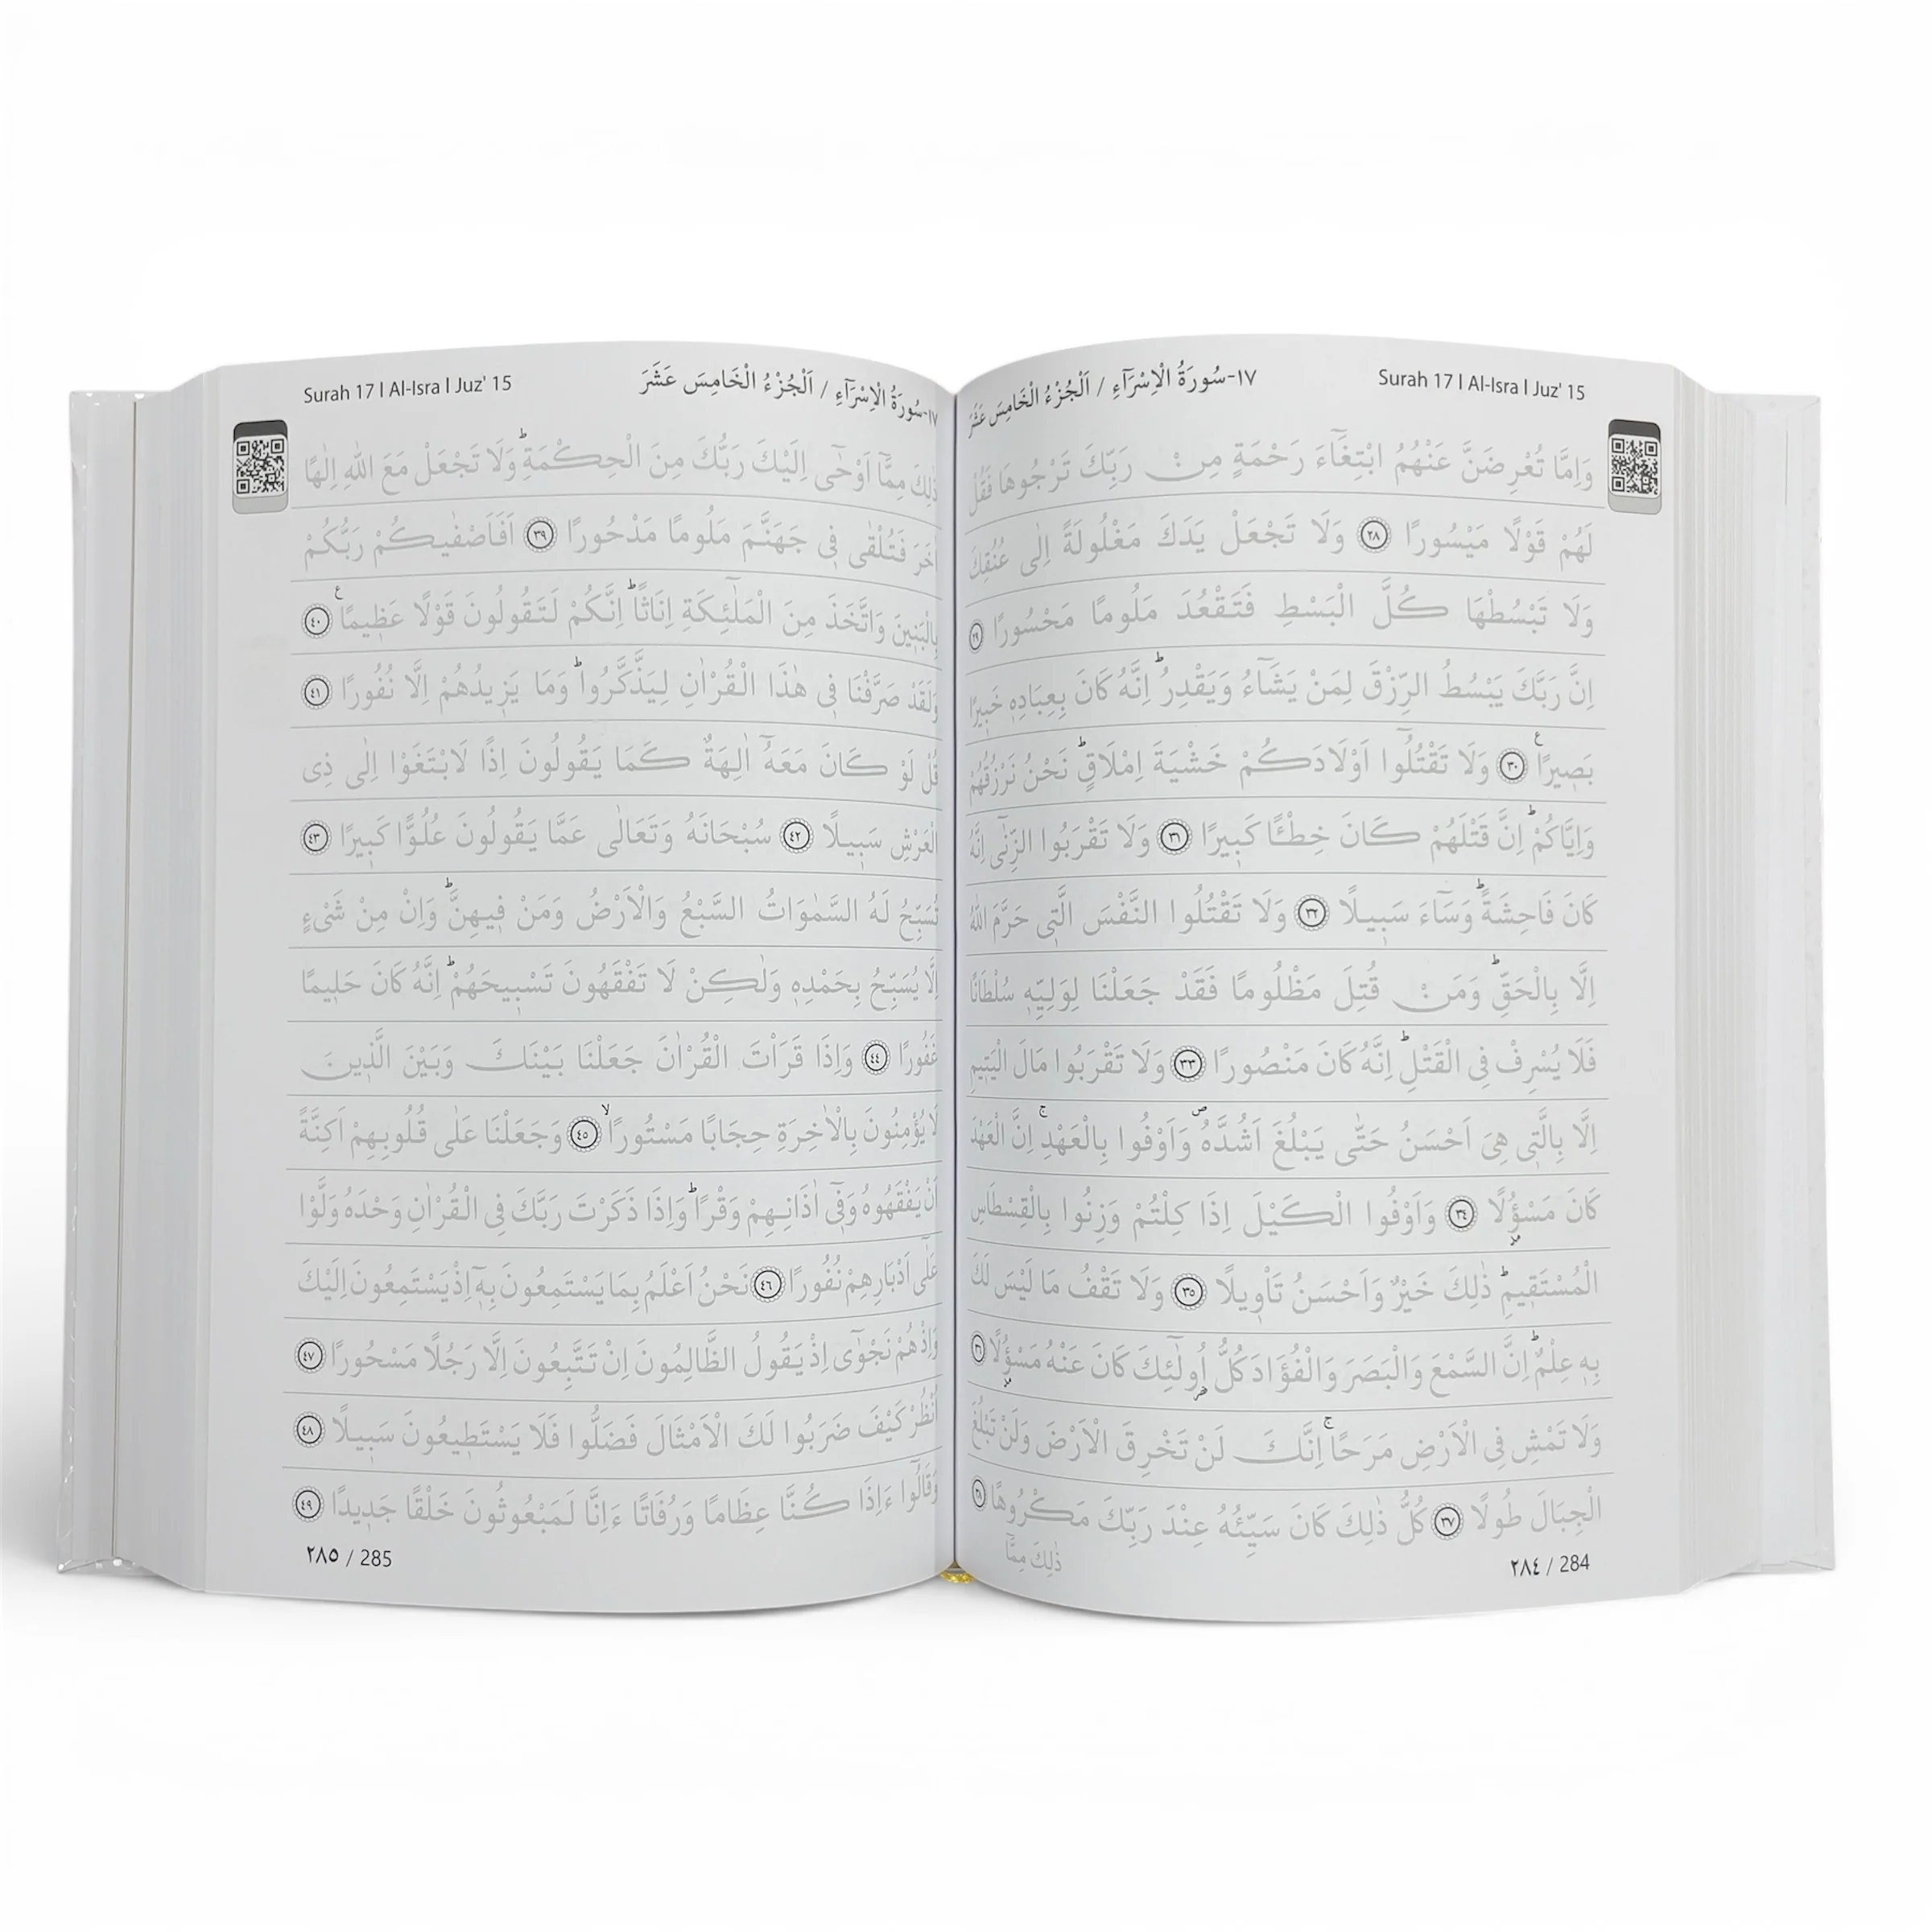 Surah 17 | Al-Isra | Juz' 15
١٧-سُورَةُ الْاِسْرَٓاءِ / اَلْجُزْءُ الْخَامِسَ عَشَرَ
وَاِمَّا تُعْرِضَنَّ عَنْهُمُ ابْتِغَٓاءَ رَحْمَةٍ مِنْ رَبِّكَ تَرْجُوهَا فَقُلْ
لَهُمْ قَوْلًا مَيْسُورًا ٢٨ وَلَا تَجْعَلْ يَدَكَ مَغْلُولَةً اِلٰى عُنُقِكَ
وَلَا تَبْسُطْهَا كُلَّ الْبَسْطِ فَتَقْعُدَ مَلُومًا مَحْسُورًا ٢٩
اِنَّ رَبَّكَ يَبْسُطُ الرِّزْقَ لِمَنْ يَشَٓاءُ وَيَقْدِرُ ط اِنَّهُ كَانَ بِعِبَادِهٖ خَبٖيرًا
بَصٖيرًا ع ٣٠ وَلَا تَقْتُلُٓوا اَوْلَادَكُمْ خَشْيَةَ اِمْلَاقٍ ط نَحْنُ نَرْزُقُهُمْ
وَاِيَّاكُمْ ط اِنَّ قَتْلَهُمْ كَانَ خِطْـًٔا كَبٖيرًا ٣١ وَلَا تَقْرَبُوا الزِّنٰٓى اِنَّهُ
كَانَ فَاحِشَةً ط وَسَٓاءَ سَبٖيلًا ٣٢ وَلَا تَقْتُلُوا النَّفْسَ الَّتٖى حَرَّمَ اللّٰهُ
اِلَّا بِالْحَقِّ ط وَمَنْ قُتِلَ مَظْلُومًا فَقَدْ جَعَلْنَا لِوَلِيِّهٖ سُلْطَانًا
فَلَا يُسْرِفْ فِى الْقَتْلِ ط اِنَّهُ كَانَ مَنْصُورًا ٣٣ وَلَا تَقْرَبُوا مَالَ الْيَتٖيمِ
اِلَّا بِالَّتٖى هِىَ اَحْسَنُ حَتّٰى يَبْلُغَ اَشُدَّهُ ص وَاَوْفُوا بِالْعَهْدِ ج اِنَّ الْعَهْدَ
كَانَ مَسْؤُلًا ٣٤ وَاَوْفُوا الْكَيْلَ اِذَا كِلْتُمْ وَزِنُوا بِالْقِسْطَاسِ
الْمُسْتَقٖيمِ ط ذٰلِكَ خَيْرٌ وَاَحْسَنُ تَاْوٖيلًا ٣٥ وَلَا تَقْفُ مَا لَيْسَ لَكَ
بِهٖ عِلْمٌ ط اِنَّ السَّمْعَ وَالْبَصَرَ وَالْفُؤَادَ كُلُّ اُولٰٓئِكَ كَانَ عَنْهُ مَسْؤُلًا ٣٦
وَلَا تَمْشِ فِى الْاَرْضِ مَرَحًا ج اِنَّكَ لَنْ تَخْرِقَ الْاَرْضَ وَلَنْ تَبْلُغَ
الْجِبَالَ طُولًا ٣٧ كُلُّ ذٰلِكَ كَانَ سَيِّئُهُ عِنْدَ رَبِّكَ مَكْرُوهًا ٣٨
ذٰلِكَ مِمَّٓا
٢٨٤ / 284
Surah 17 | Al-Isra | Juz' 15
١٧-سُورَةُ الْاِسْرَٓاءِ / اَلْجُزْءُ الْخَامِسَ عَشَرَ
ذٰلِكَ مِمَّٓا اَوْحٰٓى اِلَيْكَ رَبُّكَ مِنَ الْحِكْمَةِ ط وَلَا تَجْعَلْ مَعَ اللّٰهِ اِلٰهًا
اٰخَرَ فَتُلْقٰى فٖى جَهَنَّمَ مَلُومًا مَدْحُورًا ٣٩ اَفَاَصْفٰيكُمْ رَبُّكُمْ
بِالْبَنٖينَ وَاتَّخَذَ مِنَ الْمَلٰٓئِكَةِ اِنَاثًا ط اِنَّكُمْ لَتَقُولُونَ قَوْلًا عَظٖيمًا ع ٤٠
وَلَقَدْ صَرَّفْنَا فٖى هٰذَا الْقُرْاٰنِ لِيَذَّكَّرُوا ط وَمَا يَزٖيدُهُمْ اِلَّا نُفُورًا ٤١
قُلْ لَوْ كَانَ مَعَهُٓ اٰلِهَةٌ كَمَا يَقُولُونَ اِذًا لَابْتَغَوْا اِلٰى ذِى
الْعَرْشِ سَبٖيلًا ٤٢ سُبْحَانَهُ وَتَعَالٰى عَمَّا يَقُولُونَ عُلُوًّا كَبٖيرًا ٤٣
تُسَبِّحُ لَهُ السَّمٰوَاتُ السَّبْعُ وَالْاَرْضُ وَمَنْ فٖيهِنَّ ط وَاِنْ مِنْ شَىْءٍ
اِلَّا يُسَبِّحُ بِحَمْدِهٖ وَلٰكِنْ لَا تَفْقَهُونَ تَسْبٖيحَهُمْ ط اِنَّهُ كَانَ حَلٖيمًا
غَفُورًا ٤٤ وَاِذَا قَرَاْتَ الْقُرْاٰنَ جَعَلْنَا بَيْنَكَ وَبَيْنَ الَّذٖينَ
لَا يُؤْمِنُونَ بِالْاٰخِرَةِ حِجَابًا مَسْتُورًا لا ٤٥ وَجَعَلْنَا عَلٰى قُلُوبِهِمْ اَكِنَّةً
اَنْ يَفْقَهُوهُ وَفٖٓى اٰذَانِهِمْ وَقْرًا ط وَاِذَا ذَكَرْتَ رَبَّكَ فِى الْقُرْاٰنِ وَحْدَهُ وَلَّوْا
عَلٰٓى اَدْبَارِهِمْ نُفُورًا ٤٦ نَحْنُ اَعْلَمُ بِمَا يَسْتَمِعُونَ بِهٖٓ اِذْ يَسْتَمِعُونَ اِلَيْكَ
وَاِذْ هُمْ نَجْوٰٓى اِذْ يَقُولُ الظَّالِمُونَ اِنْ تَتَّبِعُونَ اِلَّا رَجُلًا مَسْحُورًا ٤٧
اُنْظُرْ كَيْفَ ضَرَبُوا لَكَ الْاَمْثَالَ فَضَلُّوا فَلَا يَسْتَطٖيعُونَ سَبٖيلًا ٤٨
وَقَالُٓوا ءَاِذَا كُنَّا عِظَامًا وَرُفَاتًا ءَاِنَّا لَمَبْعُوثُونَ خَلْقًا جَدٖيدًا ٤٩
٢٨٥ / 285